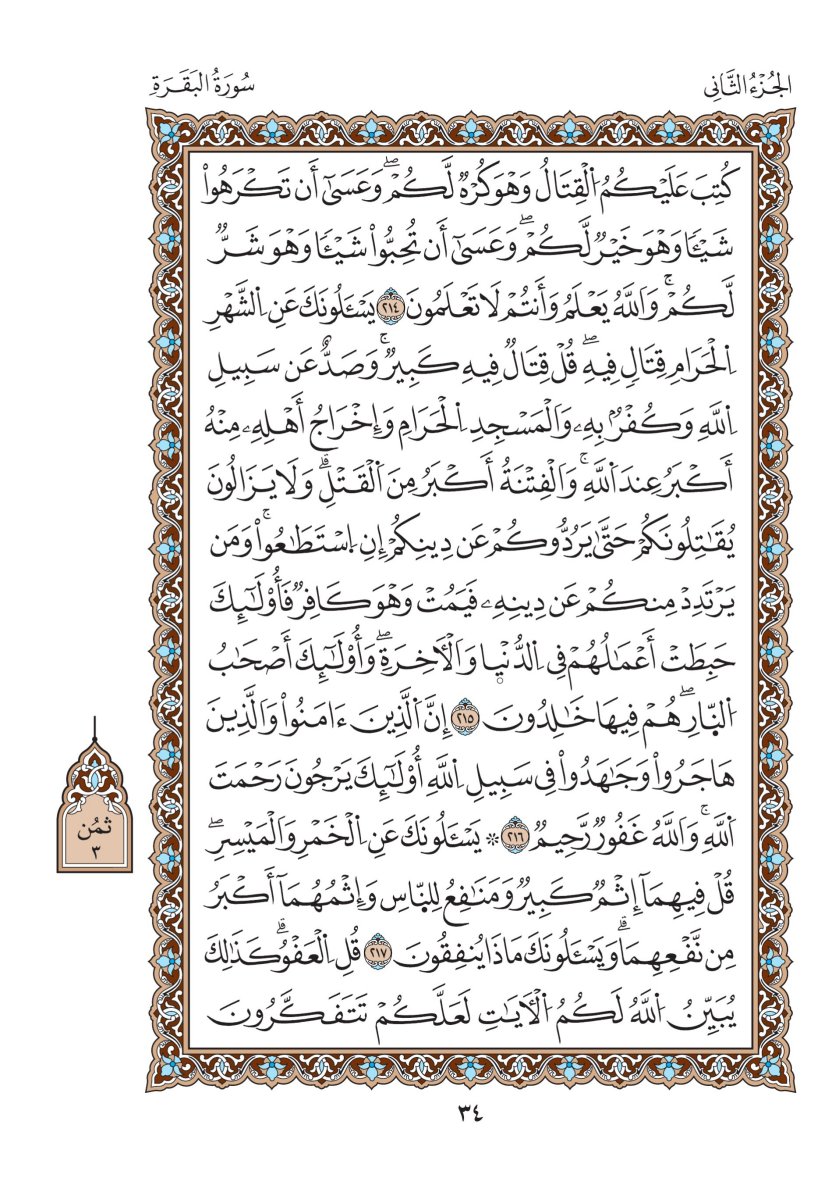 الجُزْءُ الثَّانِي
سُورَةُ البَقَرَةِ
كُتِبَ عَلَيْكُمُ اُ۬لْقِتَالُ وَهْوَ كُرْهٞ لَّكُمْۖ وَعَسَىٰٓ أَن تَكْرَهُواْ
شَيْـٔٗا وَهْوَ خَيْرٞ لَّكُمْۖ وَعَسَىٰٓ أَن تُحِبُّواْ شَيْـٔٗا وَهْوَ شَرّٞ
لَّكُمْۚ وَاَللَّهُ يَعْلَمُ وَأَنتُمْ لَا تَعْلَمُونَ ٢١٤ يَسْـَٔلُونَكَ عَنِ اِ۬لشَّهْرِ
اِ۬لْحَرَامِ قِتَالٖ فِيهِۖ قُلْ قِتَالٞ فِيهِ كَبِيرٞۚ وَصَدٌّ عَن سَبِيلِ
اِ۬للَّهِ وَكُفْرُۢ بِهِۦ وَاَلْمَسْجِدِ اِ۬لْحَرَامِ وَإِخْرَاجُ أَهْلِهِۦ مِنْهُ
أَكْبَرُ عِندَ اَ۬للَّهِۚ وَاَلْفِتْنَةُ أَكْبَرُ مِنَ اَ۬لْقَتْلِۗ وَلَا يَزَالُونَ
يُقَٰتِلُونَكُمْ حَتَّىٰ يَرُدُّوكُمْ عَن دِينِكُمْ إِنِ اِ۪سْتَطَٰعُواْۚ وَمَن
يَرْتَدِدْ مِنكُمْ عَن دِينِهِۦ فَيَمُتْ وَهْوَ كَافِرٞ فَأُوْلَٰٓئِكَ
حَبِطَتْ أَعْمَٰلُهُمْ فِي اِ۬لدُّنْيۭا وَاَلْأٓخِرَةِۖ وَأُوْلَٰٓئِكَ أَصْحَٰبُ
اُ۬لنّ۪ارِۖ هُمْ فِيهَا خَٰلِدُونَ ٢١٥ إِنَّ اَ۬لَّذِينَ ءَامَنُواْ وَاَلَّذِينَ
هَاجَرُواْ وَجَٰهَدُواْ فِي سَبِيلِ اِ۬للَّهِ أُوْلَٰٓئِكَ يَرْجُونَ رَحْمَتَ
اَ۬للَّهِۚ وَاَللَّهُ غَفُورٞ رَّحِيمٞ ٢١٦ ۞ يَسْـَٔلُونَكَ عَنِ اِ۬لْخَمْرِ وَاَلْمَيْسِرِۖ
قُلْ فِيهِمَآ إِثْمٞ كَبِيرٞ وَمَنَٰفِعُ لِلنّ۪اسِ وَإِثْمُهُمَآ أَكْبَرُ
مِن نَّفْعِهِمَاۗ وَيَسْـَٔلُونَكَ مَاذَا يُنفِقُونَ ٢١٧ قُلِ اِ۬لْعَفْوُۗ كَذَٰلِكَ
يُبَيِّنُ اُ۬للَّهُ لَكُمُ اُ۬لْأٓيَٰتِ لَعَلَّكُمْ تَتَفَكَّرُونَ
ثُمُن
٣
٣٤